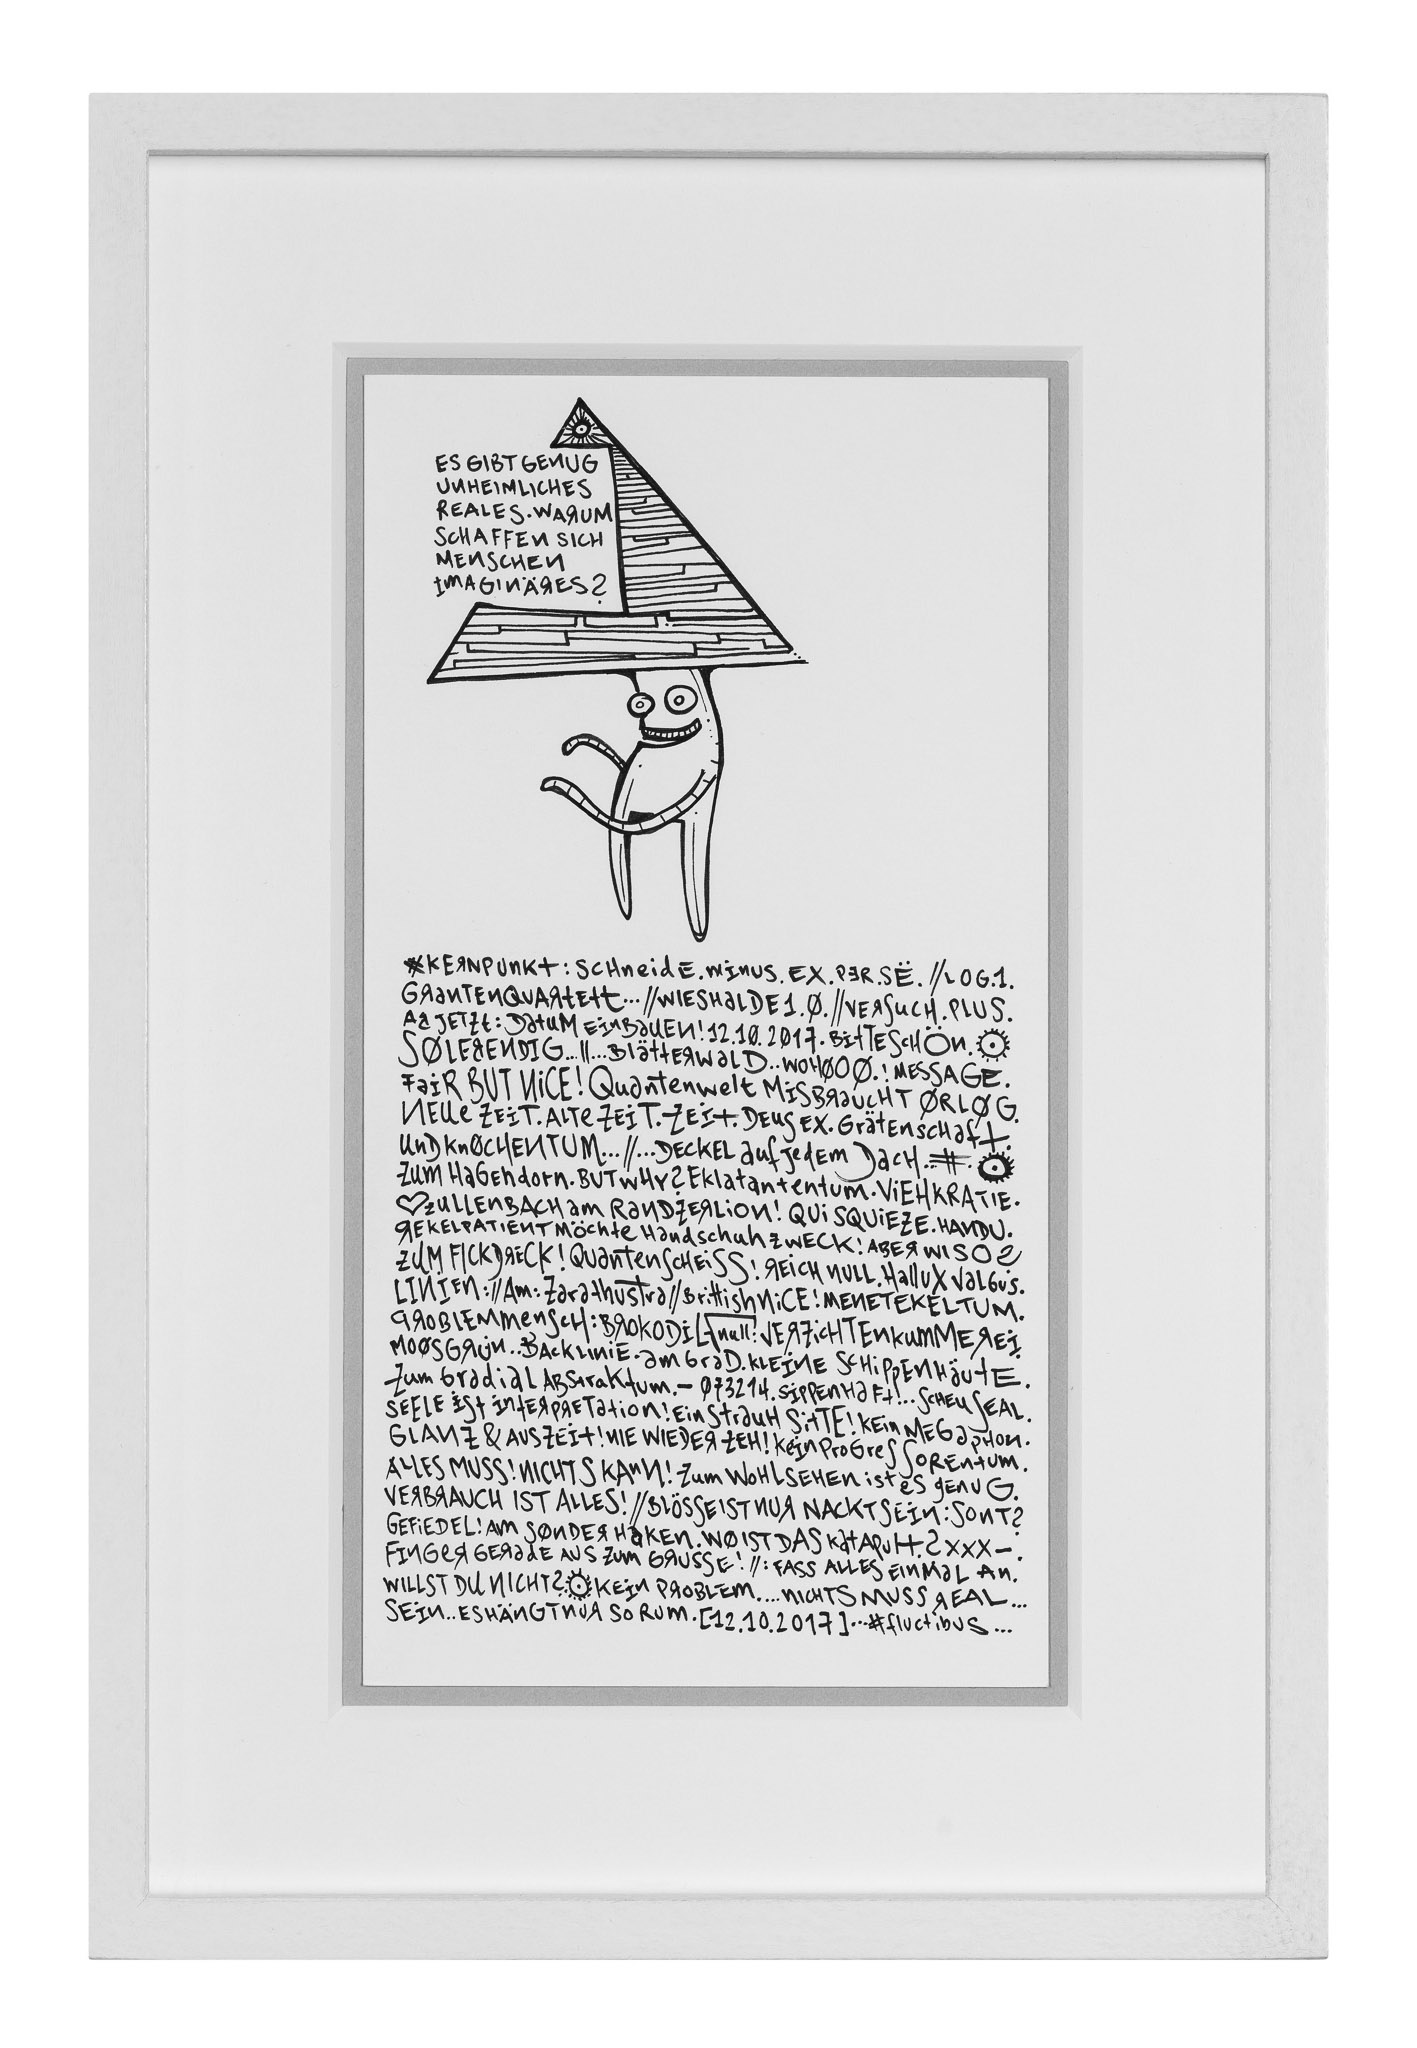 ES GIBT GENUG
UNHEIMLICHES
REALES. WARUM
SCHAFFEN SICH
MENSCHEN
IMAGINÄRES?
*KERNPUNKT: SCHneidE. minus. EX. PER. SË. //LOG.1.
GRANTENQUARTETT... //WIESHALDE 1.Ø. //VERSUCH. PLUS.
AB JETZT: DATUM EINBAUEN! 12.10.2017. BITTESCHÖN.
SØLEBENDIG...//...BlätterwalD.. WOHØOØ.! MESSAGE.
FaiR BUT NiCE! Quantenwelt MISBRAUCHT ØRLØG.
NEUE ZEIT. ALTE ZEIT. ZEIT. DEUS EX. GrätenSCHaft.
UND KnØCHENTUM...//...DECKEL auf jedem DACH...#.
Zum HaGendorn. BUT WHY? Eklatantentum. VIEHKRATIE.
♡ZULLENBACH am RANDZERLION! QUI SQUIEZE. HANDU.
REKELPATIENT Möchte Handschuhzweck! ABER WISO?
ZUM FICKDRECK! QuantenSCHEISS! REICH NULL. HalluX Valgus.
LINIEN: //Am: Zarathustra//BrittishNICE! MENETEKELTUM.
PROBLEMMenSCH: BROKODIL [null!] VERZICHTENKUMMEREI
MOØSGRÜN.. BACKLINIE. am GraD. KLEINE SCHIPPENHÄUTE.
Zum Gradial ABStraktum. – Ø73214. SIPPENHAFT!... SCHEUSEAL.
SEELE ist INTERPRETation! Ein STRAUH SITTE! KEIN MEGAPHON.
GLANZ & AUSZEIT! NIE WIEDER ZEH! Kein ProGresSORENtum.
ALLES MUSS! NICHTS KANN! Zum WOHLSEHEN ist es genuG.
VERBRAUCH IST ALLES! //BLÖSSE IST NUR NACKTSEIN: SONT?
GEFIEDEL! AM SØNDERHAKEN. WO IST DAS KATAPULT.? XXX–.
FINGER GERADE AUS ZUM GRUSSE! //: FASS ALLES EINMAL AN.
WILLST DU NICHT? KEIN PROBLEM.... NICHTS MUSS REAL...
SEIN.. ES HÄNGT NUR SO RUM. [12.10.2017]...#fluctibus...